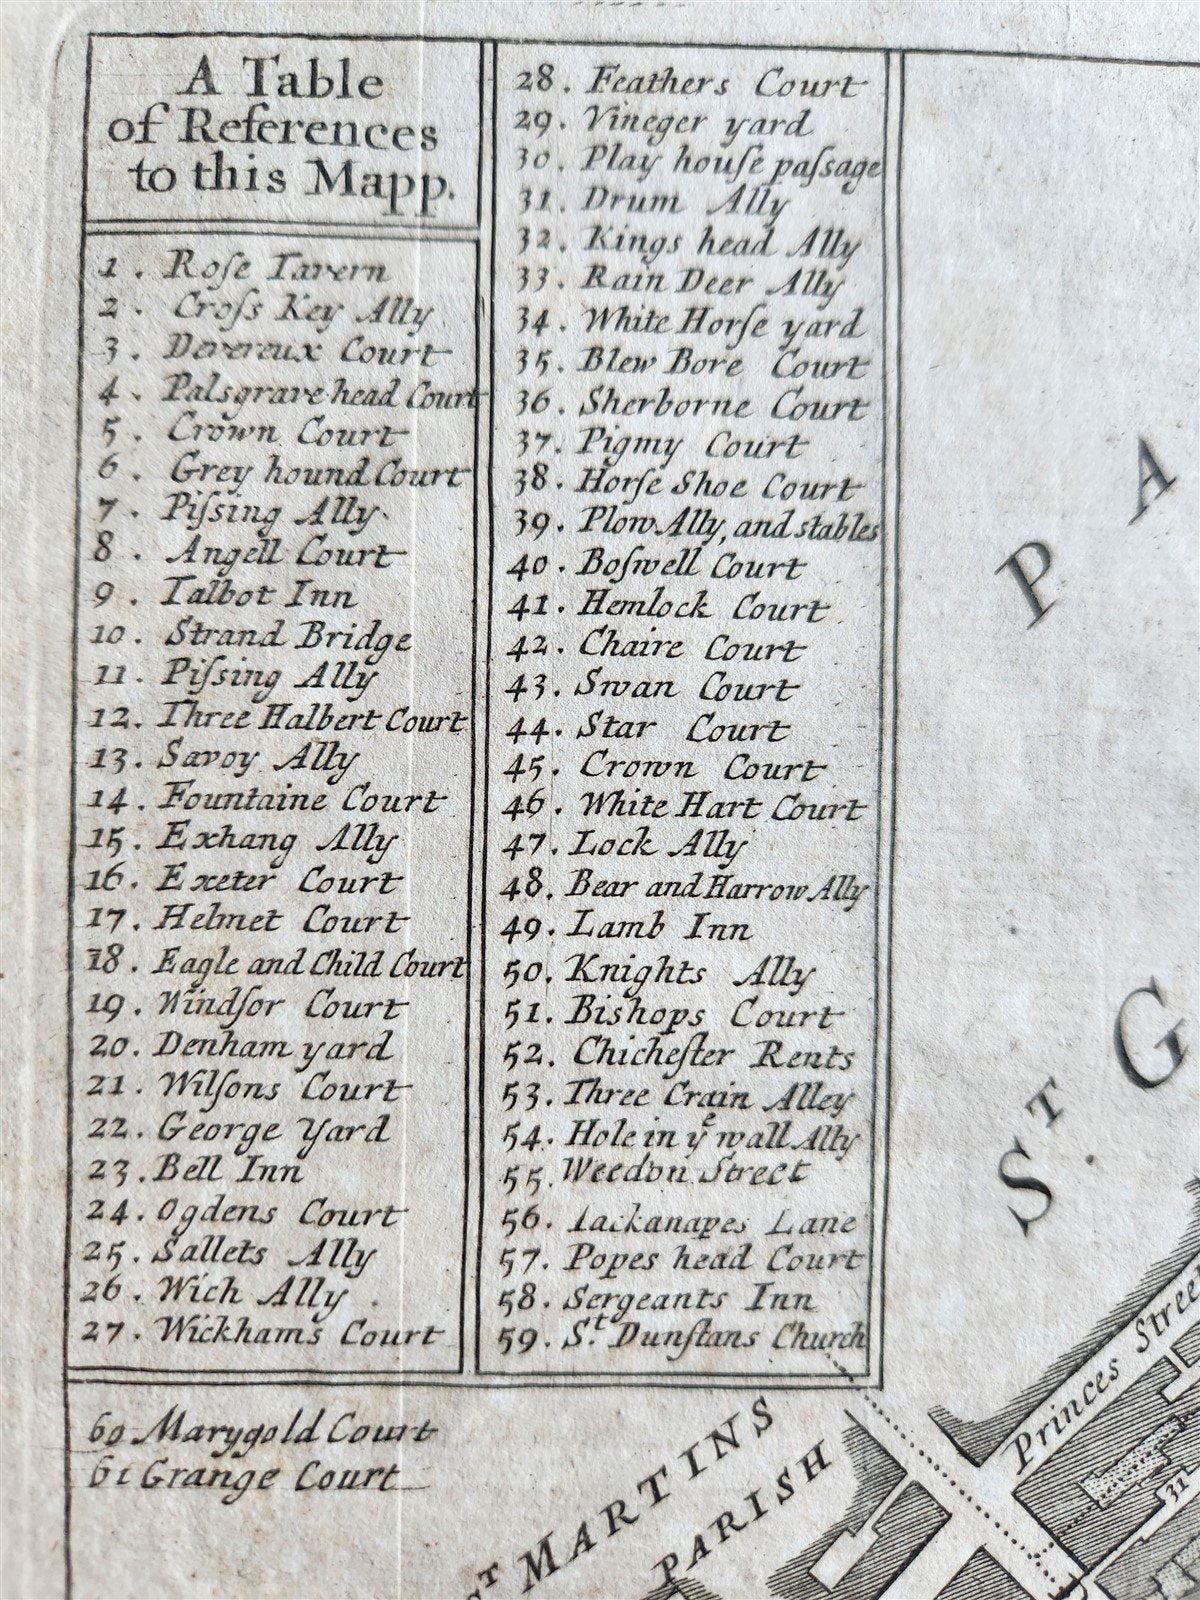 A Table
of References
to this Mapp.
1. Roſe Tavern
2. Croſs Key Ally
3. Devereux Court
4. Palsgrave head Court
5. Crown Court
6. Grey hound Court
7. Piſsing Ally
8. Angell Court
9. Talbot Inn
10. Strand Bridge
11. Piſsing Ally
12. Three Halbert Court
13. Savoy Ally
14. Fountaine Court
15. Exhang Ally
16. Exeter Court
17. Helmet Court
18. Eagle and Child Court
19. Windſor Court
20. Denham yard
21. Wilſons Court
22. George Yard
23. Bell Inn
24. Ogdens Court
25. Sallets Ally
26. Wich Ally
27. Wickhams Court
28. Feathers Court
29. Vineger yard
30. Play houſe paſsage
31. Drum Ally
32. Kings head Ally
33. Rain Deer Ally
34. White Horſe yard
35. Blew Bore Court
36. Sherborne Court
37. Pigmy Court
38. Horſe Shoe Court
39. Plow Ally, and stables
40. Boſwell Court
41. Hemlock Court
42. Chaire Court
43. Swan Court
44. Star Court
45. Crown Court
46. White Hart Court
47. Lock Ally
48. Bear and Harrow Ally
49. Lamb Inn
50. Knights Ally
51. Bishops Court
52. Chicheſter Rents
53. Three Crain Alley
54. Hole in yͤ wall Ally
55. Weedon Street
56. Iackanapes Lane
57. Popes head Court
58. Sergeants Inn
59. St. Dunſtans Church
60 Marygold Court
61 Grange Court
PA
ST. G
ST MARTINS
PARISH
Princes Street
31